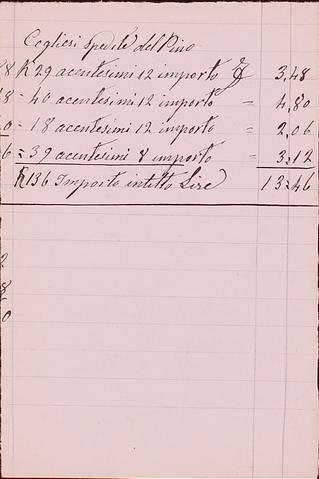 Cogliesi Spedite del Pino
8 K 29 a centesimi 12 importo £ 3,48
8 = 40 a centesimi 12 importo = 4,80
0 = 18 a centesimi 12 importo = 2,06
6 = 39 a centesimi 8 importo = 3,12
K 136 Importo in tetto Lire 13,46
2
8
0